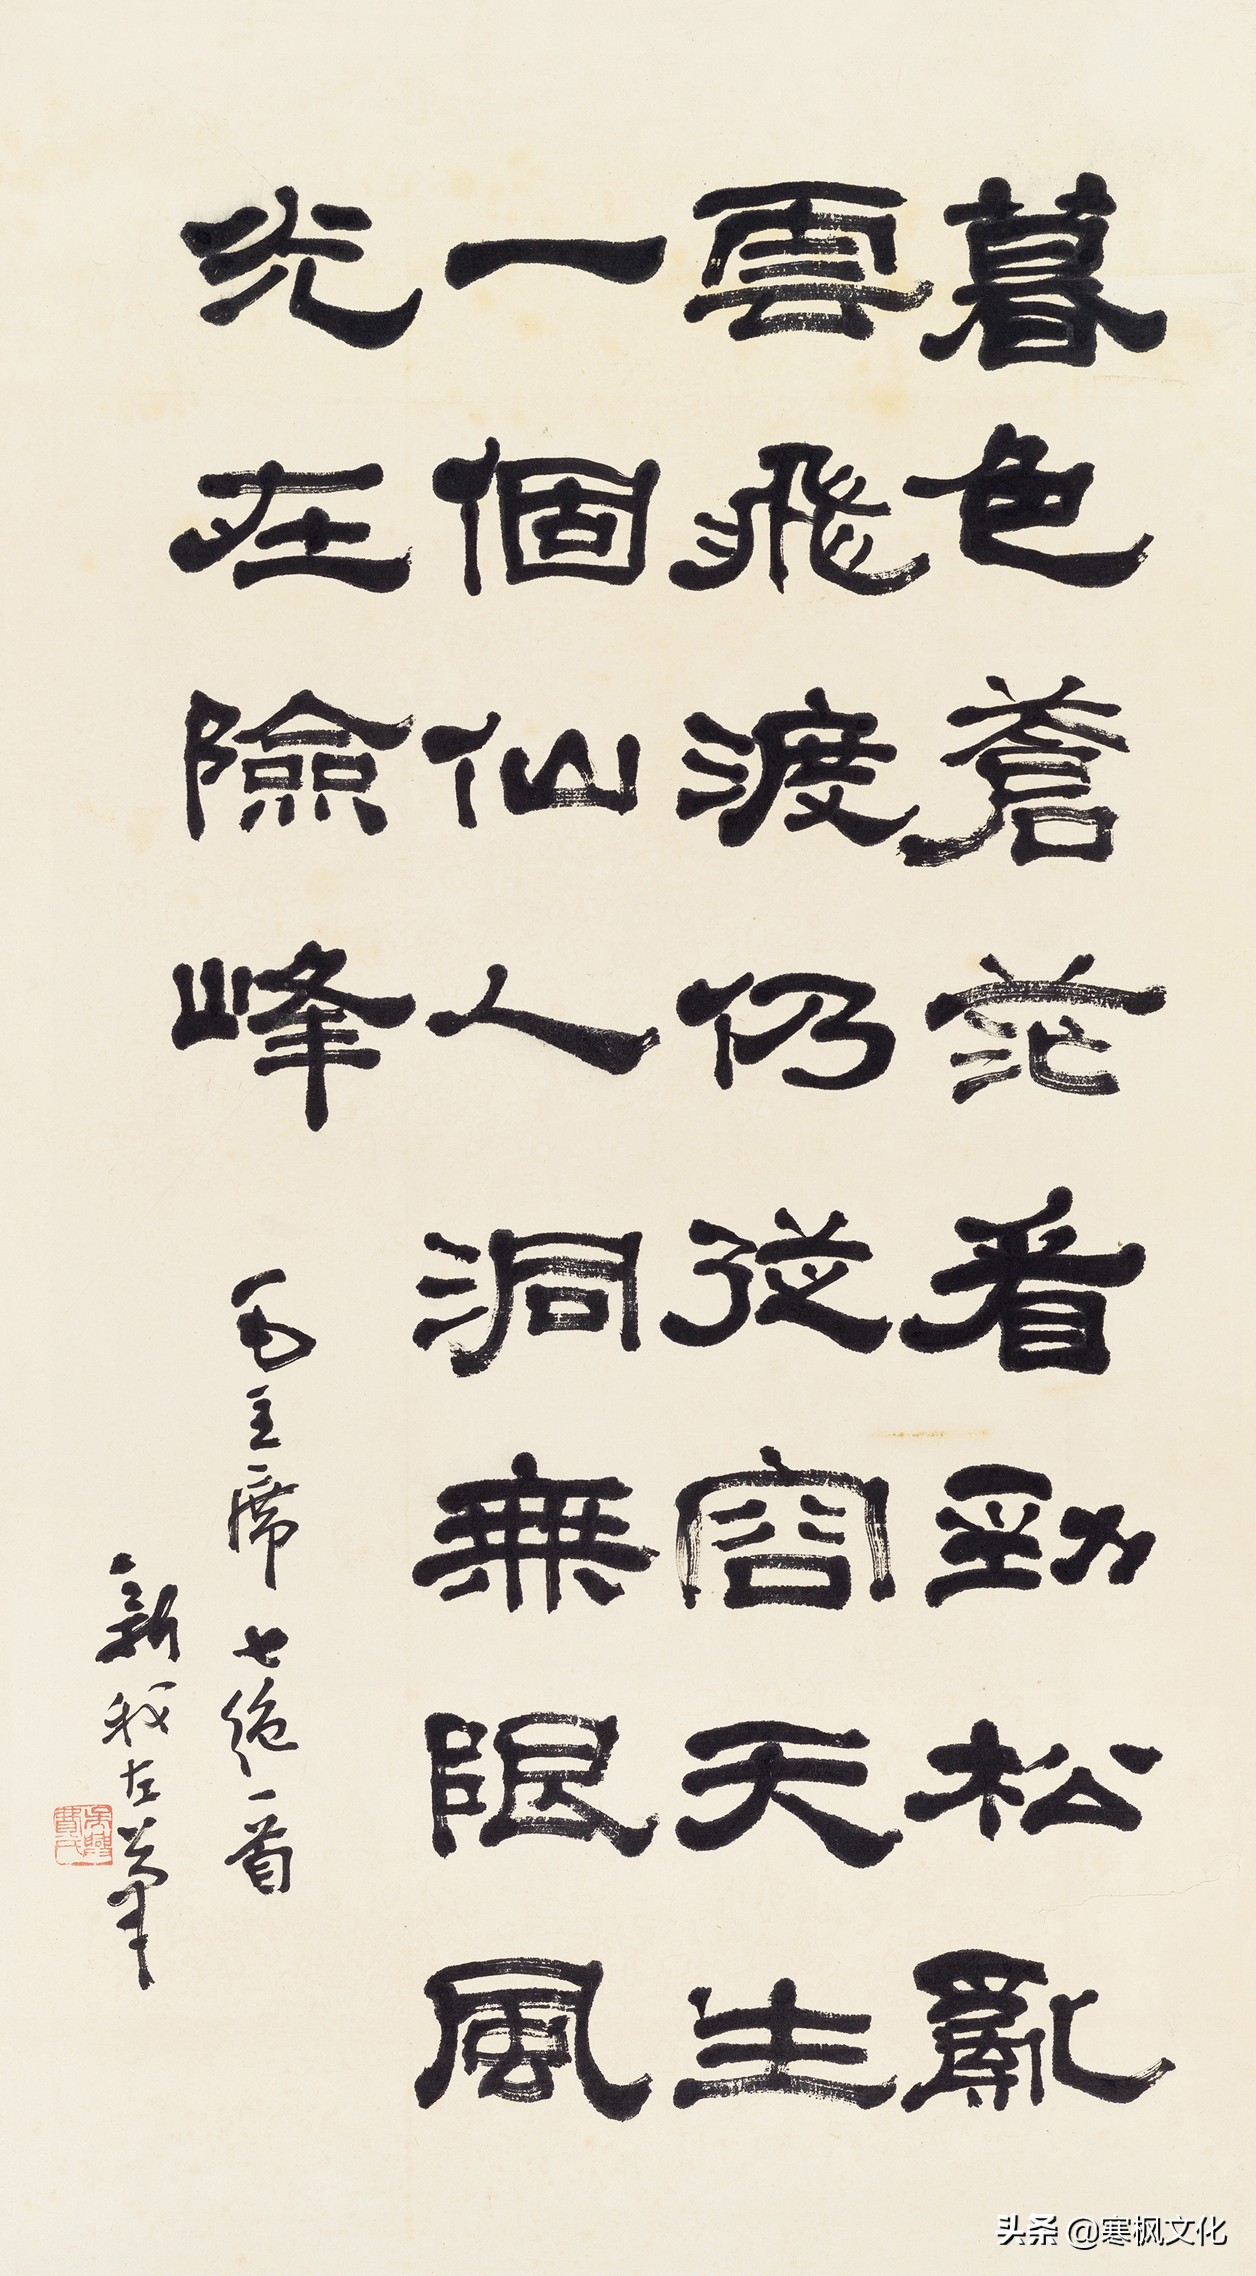 暮色蒼茫看勁松亂
雲飛渡仍從容天生
一個仙人洞無限風
光在險峰
毛主席七絕一首
新我左筆
头条 @寒枫文化